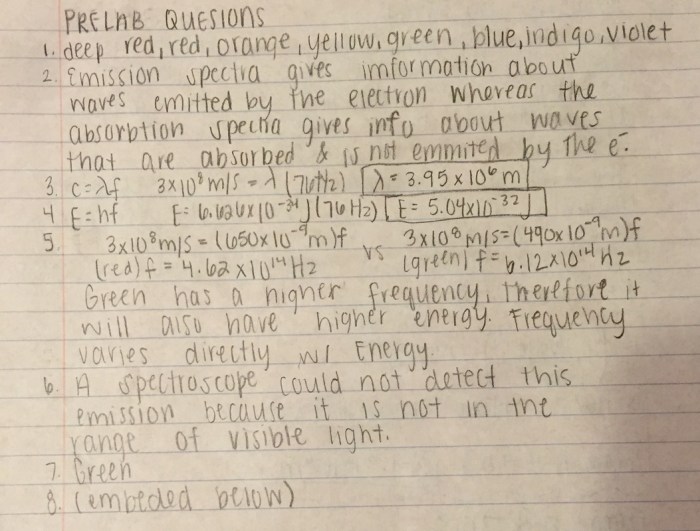 PRELAB QUESIONS
1. deep red, red, orange, yellow, green, blue, indigo, violet
2. Emission spectra gives imformation about
waves emitted by the electron whereas the
absorbtion spectra gives info about waves
that are absorbed & is not emmited by the e⁻.
3. c=λf 3×10⁸m/s = λ(76Hz) λ = 3.95×10⁶m
4 E=hf E= 6.626×10⁻³⁴J(76Hz) E= 5.04×10⁻³²J
5. 3×10⁸m/s = (650×10⁻⁹m)f vs 3×10⁸m/s=(490×10⁻⁹m)f
(red) f = 4.62×10¹⁴Hz (green) f= 6.12×10¹⁴Hz
Green has a higher frequency, therefore it
will also have higher energy. Frequency
varies directly w/ Energy.
6. A spectroscope could not detect this
emission because it is not in the
range of visible light.
7. Green
8. (embeded below)